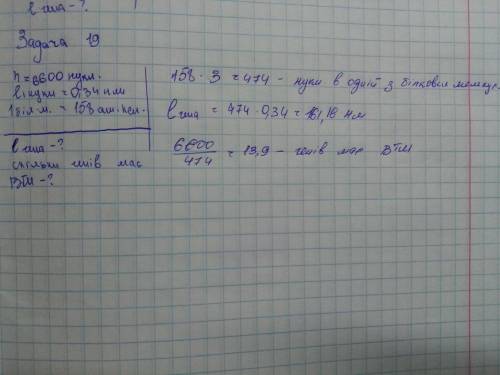 l гена - ?
Задача 19
n = 6600 нукл.
l нукл = 0,34 нм
1 біл м. = 158 амінок.
158 · 3 = 474 - нукл в одній з білкових молекул
l гена = 474 · 0,34 = 161,16 нм
l гена - ?
скільки генів має
ВТМ - ?
6600
474
= 13,9 - генів має ВТМ